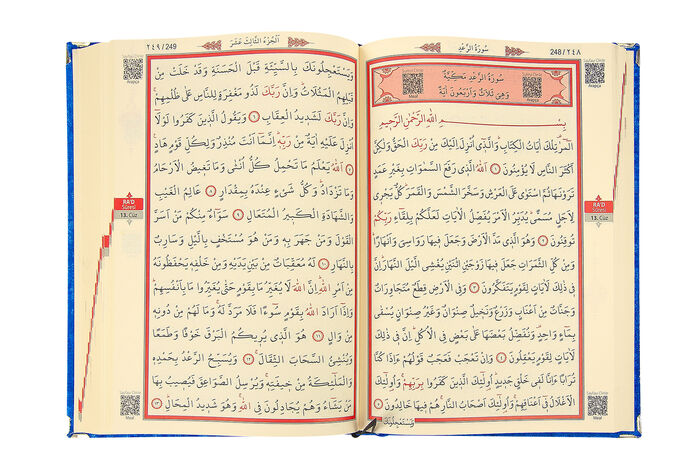 248/٢٤٨
سُورَةُ الرَّعْدِ
Sayfayı Dinle
Arapça
سُورَةُ الرَّعْدِ مَكِّيَّةٌ
وَهِيَ ثَلَاثٌ وَاَرْبَعُونَ اٰيَةً
Meal
Arapça
بِسْمِ اللّٰهِ الرَّحْمٰنِ الرَّحِيمِ
الٓمٓرٰ تِلْكَ اٰيَاتُ الْكِتَابِ وَالَّذٓي اُنْزِلَ اِلَيْكَ مِنْ رَبِّكَ الْحَقُّ وَلٰكِنَّ
اَكْثَرَ النَّاسِ لَا يُؤْمِنُونَ ١ اَللّٰهُ الَّذٓي رَفَعَ السَّمٰوَاتِ بِغَيْرِ عَمَدٍ
تَرَوْنَهَا ثُمَّ اسْتَوٰى عَلَى الْعَرْشِ وَسَخَّرَ الشَّمْسَ وَالْقَمَرَ كُلٌّ يَجْرٓي
لِاَجَلٍ مُسَمًّى يُدَبِّرُ الْاَمْرَ يُفَصِّلُ الْاٰيَاتِ لَعَلَّكُمْ بِلِقَٓاءِ رَبِّكُمْ
تُوقِنُونَ ٢ وَهُوَ الَّذٓي مَدَّ الْاَرْضَ وَجَعَلَ فِيهَا رَوَاسِيَ وَاَنْهَارًا
وَمِنْ كُلِّ الثَّمَرَاتِ جَعَلَ فِيهَا زَوْجَيْنِ اثْنَيْنِ يُغْشِي الَّيْلَ النَّهَارَ اِنَّ
فِي ذٰلِكَ لَاٰيَاتٍ لِقَوْمٍ يَتَفَكَّرُونَ ٣ وَفِي الْاَرْضِ قِطَعٌ مُتَجَاوِرَاتٌ
وَجَنَّاتٌ مِنْ اَعْنَابٍ وَزَرْعٌ وَنَخِيلٌ صِنْوَانٌ وَغَيْرُ صِنْوَانٍ يُسْقٰى
بِمَٓاءٍ وَاحِدٍ وَنُفَضِّلُ بَعْضَهَا عَلٰى بَعْضٍ فِي الْاُكُلِ اِنَّ فِي ذٰلِكَ
لَاٰيَاتٍ لِقَوْمٍ يَعْقِلُونَ ٤ وَاِنْ تَعْجَبْ فَعَجَبٌ قَوْلُهُمْ ءَاِذَا كُنَّا
تُرَابًا ءَاِنَّا لَفِي خَلْقٍ جَدِيدٍ اُولٰٓئِكَ الَّذِينَ كَفَرُوا بِرَبِّهِمْ وَاُولٰٓئِكَ
الْاَغْلَالُ فِٓي اَعْنَاقِهِمْ وَاُولٰٓئِكَ اَصْحَابُ النَّارِ هُمْ فِيهَا خَالِدُونَ ٥
وَيَسْتَعْجِلُونَكَ
RA'D
Sûresi
13. Cüz
Sayfayı Dinle
Meal
٢٤٩/249
اَلْجُزْءُ الثَّالِثَ عَشَرَ
Sayfayı Dinle
Arapça
وَيَسْتَعْجِلُونَكَ بِالسَّيِّئَةِ قَبْلَ الْحَسَنَةِ وَقَدْ خَلَتْ مِنْ
قَبْلِهِمُ الْمَثُلَاتُ وَاِنَّ رَبَّكَ لَذُو مَغْفِرَةٍ لِلنَّاسِ عَلٰى ظُلْمِهِمْ
وَاِنَّ رَبَّكَ لَشَدِيدُ الْعِقَابِ ٦ وَيَقُولُ الَّذِينَ كَفَرُوا لَوْلَٓا
اُنْزِلَ عَلَيْهِ اٰيَةٌ مِنْ رَبِّهِ اِنَّمَٓا اَنْتَ مُنْذِرٌ وَلِكُلِّ قَوْمٍ هَادٍ
٧ اَللّٰهُ يَعْلَمُ مَا تَحْمِلُ كُلُّ اُنْثٰى وَمَا تَغِيضُ الْاَرْحَامُ
وَمَا تَزْدَادُ وَكُلُّ شَيْءٍ عِنْدَهُ بِمِقْدَارٍ ٨ عَالِمُ الْغَيْبِ
وَالشَّهَادَةِ الْكَبِيرُ الْمُتَعَالِ ٩ سَوَٓاءٌ مِنْكُمْ مَنْ اَسَرَّ
الْقَوْلَ وَمَنْ جَهَرَ بِهِ وَمَنْ هُوَ مُسْتَخْفٍ بِالَّيْلِ وَسَارِبٌ
بِالنَّهَارِ ١٠ لَهُ مُعَقِّبَاتٌ مِنْ بَيْنِ يَدَيْهِ وَمِنْ خَلْفِهِ يَحْفَظُونَهُ
مِنْ اَمْرِ اللّٰهِ اِنَّ اللّٰهَ لَا يُغَيِّرُ مَا بِقَوْمٍ حَتّٰى يُغَيِّرُوا مَا بِاَنْفُسِهِمْ
وَاِذَٓا اَرَادَ اللّٰهُ بِقَوْمٍ سُٓوءًا فَلَا مَرَدَّ لَهُ وَمَا لَهُمْ مِنْ دُونِهِ
مِنْ وَالٍ ١١ هُوَ الَّذٓي يُرِيكُمُ الْبَرْقَ خَوْفًا وَطَمَعًا
وَيُنْشِئُ السَّحَابَ الثِّقَالَ ١٢ وَيُسَبِّحُ الرَّعْدُ بِحَمْدِهِ
وَالْمَلٰٓئِكَةُ مِنْ خِيفَتِهِ وَيُرْسِلُ الصَّوَاعِقَ فَيُصِيبُ بِهَا
مَنْ يَشَٓاءُ وَهُمْ يُجَادِلُونَ فِي اللّٰهِ وَهُوَ شَدِيدُ الْمِحَالِ ١٣
RA'D
Sûresi
13. Cüz
Sayfayı Dinle
Meal